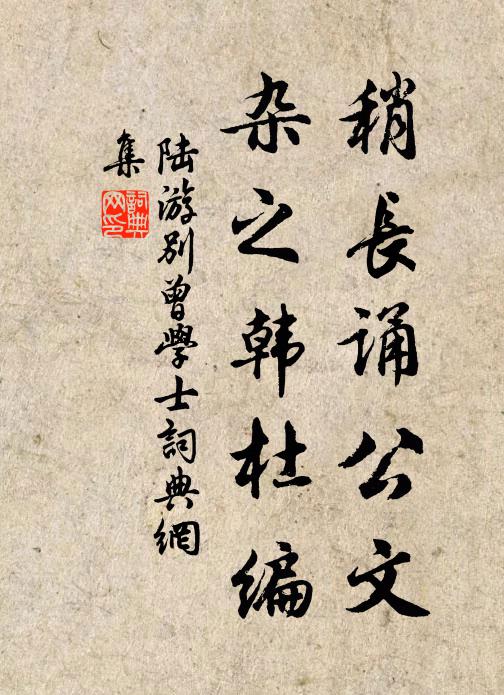 稍長诵公文
杂之韩杜编
陆游別曾學士詞典網
集
詞典
网印